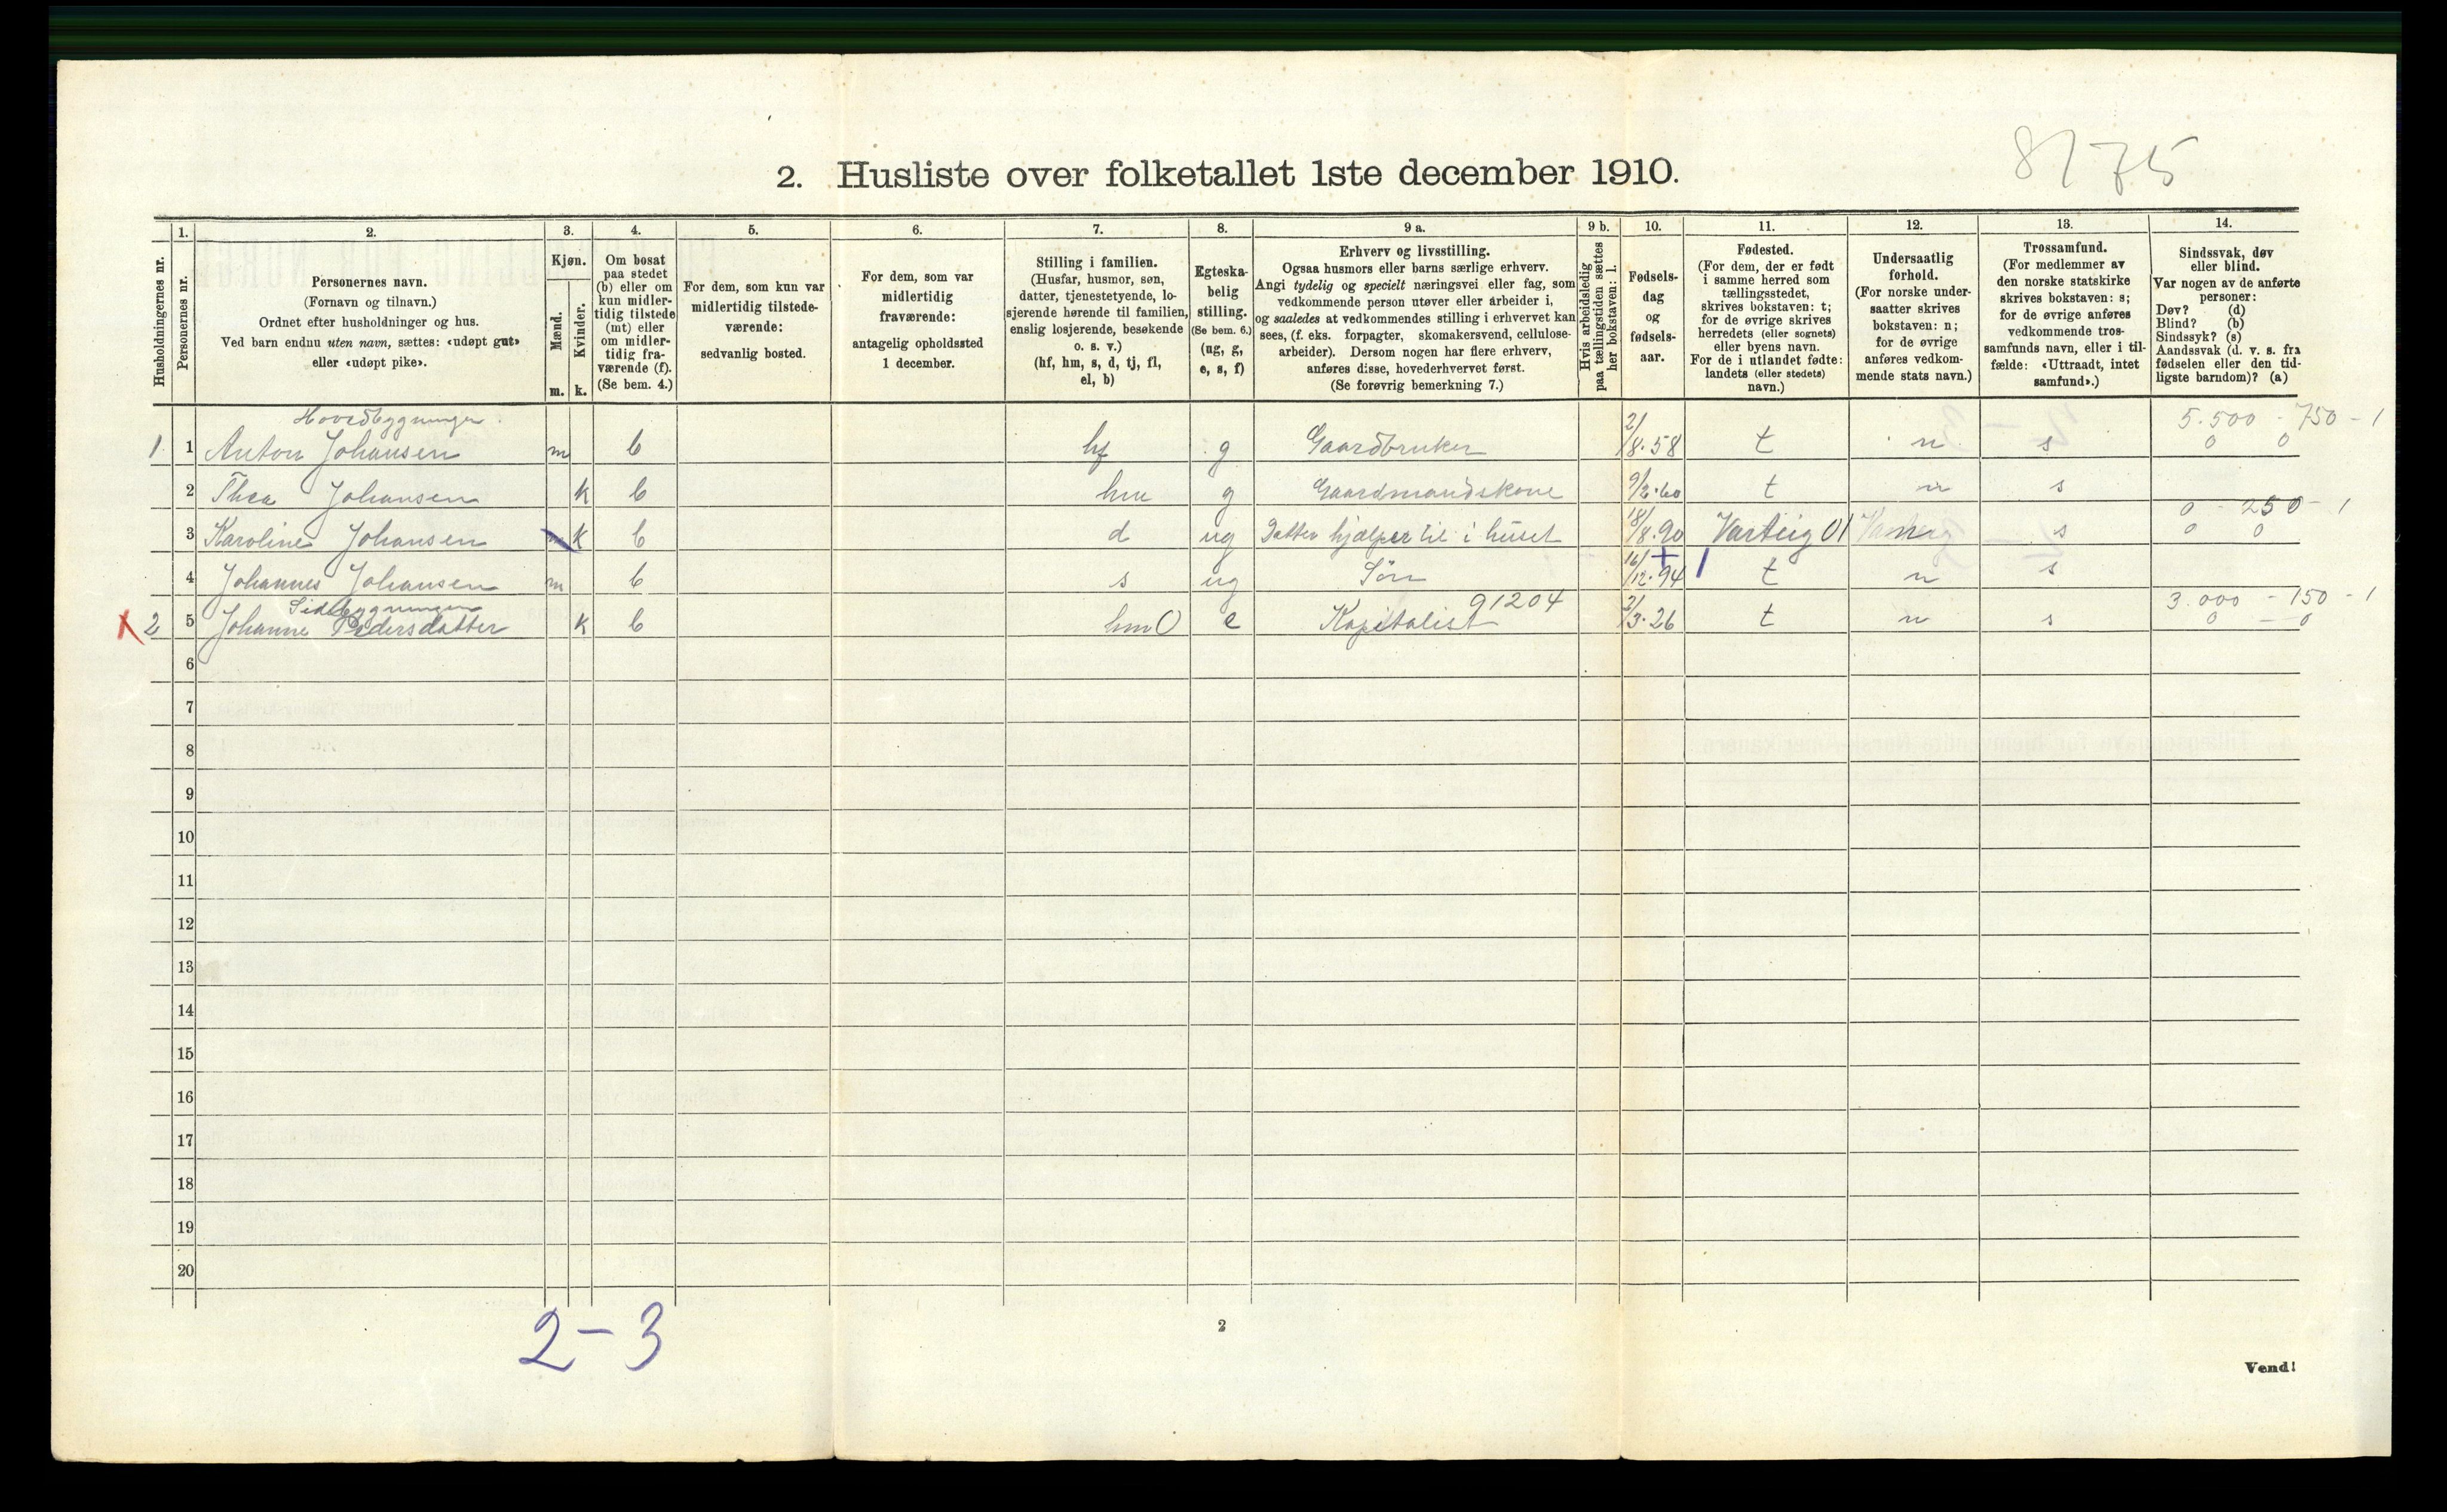 8175
2. Husliste over folketallet 1ste december 1910.
Husholdningernes nr.
1.
Personernes nr.
2.
Personernes navn.
(Fornavn og tilnavn.)
Ordnet efter husholdninger og hus.
Ved barn endnu uten navn, sættes: «udøpt gut»
eller «udøpt pike».
3.
Kjøn.
Mænd.
m.
Kvinder.
k.
4.
Om bosat
paa stedet
(b) eller om
kun midler-
tidig tilstede
(mt) eller
om midler-
tidig fra-
værende (f).
(Se bem. 4.)
5.
For dem, som kun var
midlertidig tilstede-
værende:
sedvanlig bosted.
6.
For dem, som var
midlertidig
fraværende:
antagelig opholdssted
1 december.
7.
Stilling i familien.
(Husfar, husmor, søn,
datter, tjenestetyende, lo-
sjerende hørende til familien,
enslig losjerende, besøkende
o. s. v.)
(hf, hm, s, d, tj, fl,
el, b)
8.
Egteska-
belig
stilling.
(Se bem. 6.)
(ug, g,
e, s, f)
9 a.
Erhverv og livsstilling.
Ogsaa husmors eller barns særlige erhverv.
Angi tydelig og specielt næringsvei eller fag, som
vedkommende person utøver eller arbeider i,
og saaledes at vedkommendes stilling i erhvervet kan
sees, (f. eks. forpagter, skomakersvend, cellulose-
arbeider). Dersom nogen har flere erhverv,
anføres disse, hovederhvervet først.
(Se forøvrig bemerkning 7.)
9 b.
Hvis arbeidsledig
paa tællingstiden sættes
her bokstaven: l.
10.
Fødsels-
dag
og
fødsels-
aar.
11.
Fødested.
(For dem, der er født
i samme herred som
tællingsstedet,
skrives bokstaven: t;
for de øvrige skrives
herredets (eller sognets)
eller byens navn.
For de i utlandet fødte:
landets (eller stedets)
navn.)
12.
Undersaatlig
forhold.
(For norske under-
saatter skrives
bokstaven: n;
for de øvrige
anføres vedkom-
mende stats navn.)
13.
Trossamfund.
(For medlemmer av
den norske statskirke
skrives bokstaven: s;
for de øvrige anføres
vedkommende tros-
samfunds navn, eller i til-
fælde: «Uttraadt, intet
samfund».)
14.
Sindssvak, døv
eller blind.
Var nogen av de anførte
personer:
Døv? (d)
Blind? (b)
Sindssyk? (s)
Aandssvak (d. v. s. fra
fødselen eller den tid-
ligste barndom)? (a)
Hovedbygningen.
5.500 - 750 - 1
1 1 Anton Johansen m b hf g Gaardbruker 2/8.58 t n s 0 0
2 Thea Johansen k b hm g Gaardmandskone 9/2.60 t n s
0 - 250 - 1
3 Karoline Johansen k b d ug Datter hjælper til i huset 18/8.90 Varteig 01 n s 0 0
4 Johannes Johansen m b s ug Søn 16/12.94 t n s
Sidebygningen 91204 3.000 - 150 - 1
X 2 5 Johanne Pedersdatter k b hm 0 e Kapitalist 2/3.26 t n s 0 - 0
6
7
8
9
10
11
12
13
14
15
16
17
18
19
20
2-3
2
Vend!